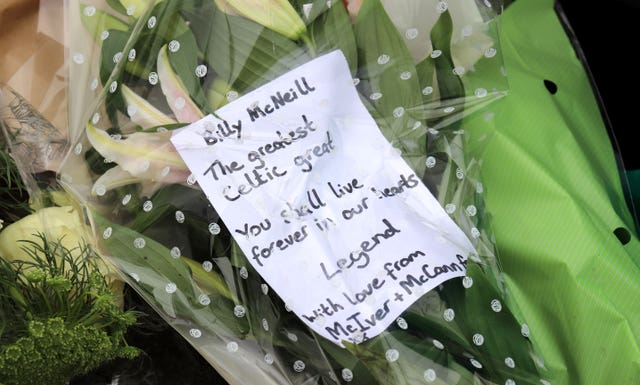 Billy McNeill
The greatest
Celtic great
You shall live
forever in our hearts
Legend
with love from
McIver + McCann